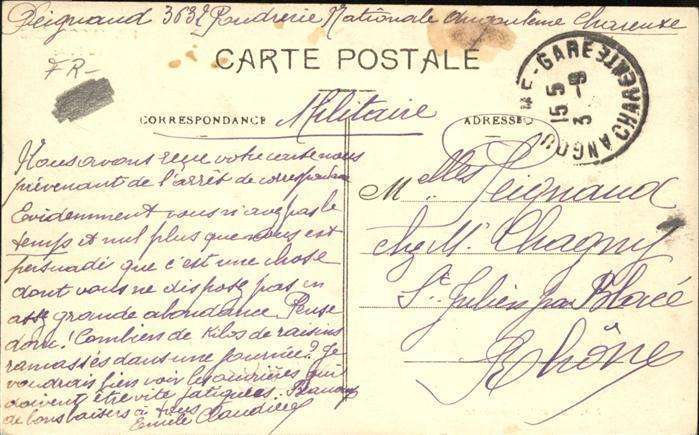 Peignaud 3632 Poudrerie Nationale Angoulême Charente
CARTE POSTALE
FR-
CORRESPONDANCE Militaire
ADRESSE
GARE CHARENTE
15 5
3 -9
Nous avons reçue votre carte nous
prévenant de l'arrêt de correspondance
Evidemment vous n'avez pas le
temps et nul plus que nous est
persuadé que c'est une chose
dont vous ne dispose pas en
assé grande abondance. Pense
donc! Combien de Kilos de raisins
ramassés dans une journée? Je
voudrais bien voir les ouvrières qui
doivent être vite fatiguées.
de bons baisers à tous
Emile Claudine
M elles Peignaud
chez Mr Chagny
St Julien par Blacé
Rhône